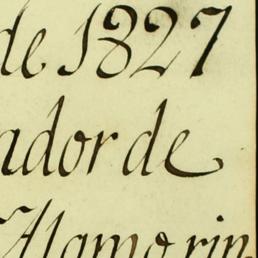 de 1827
ador de
Alamo rin